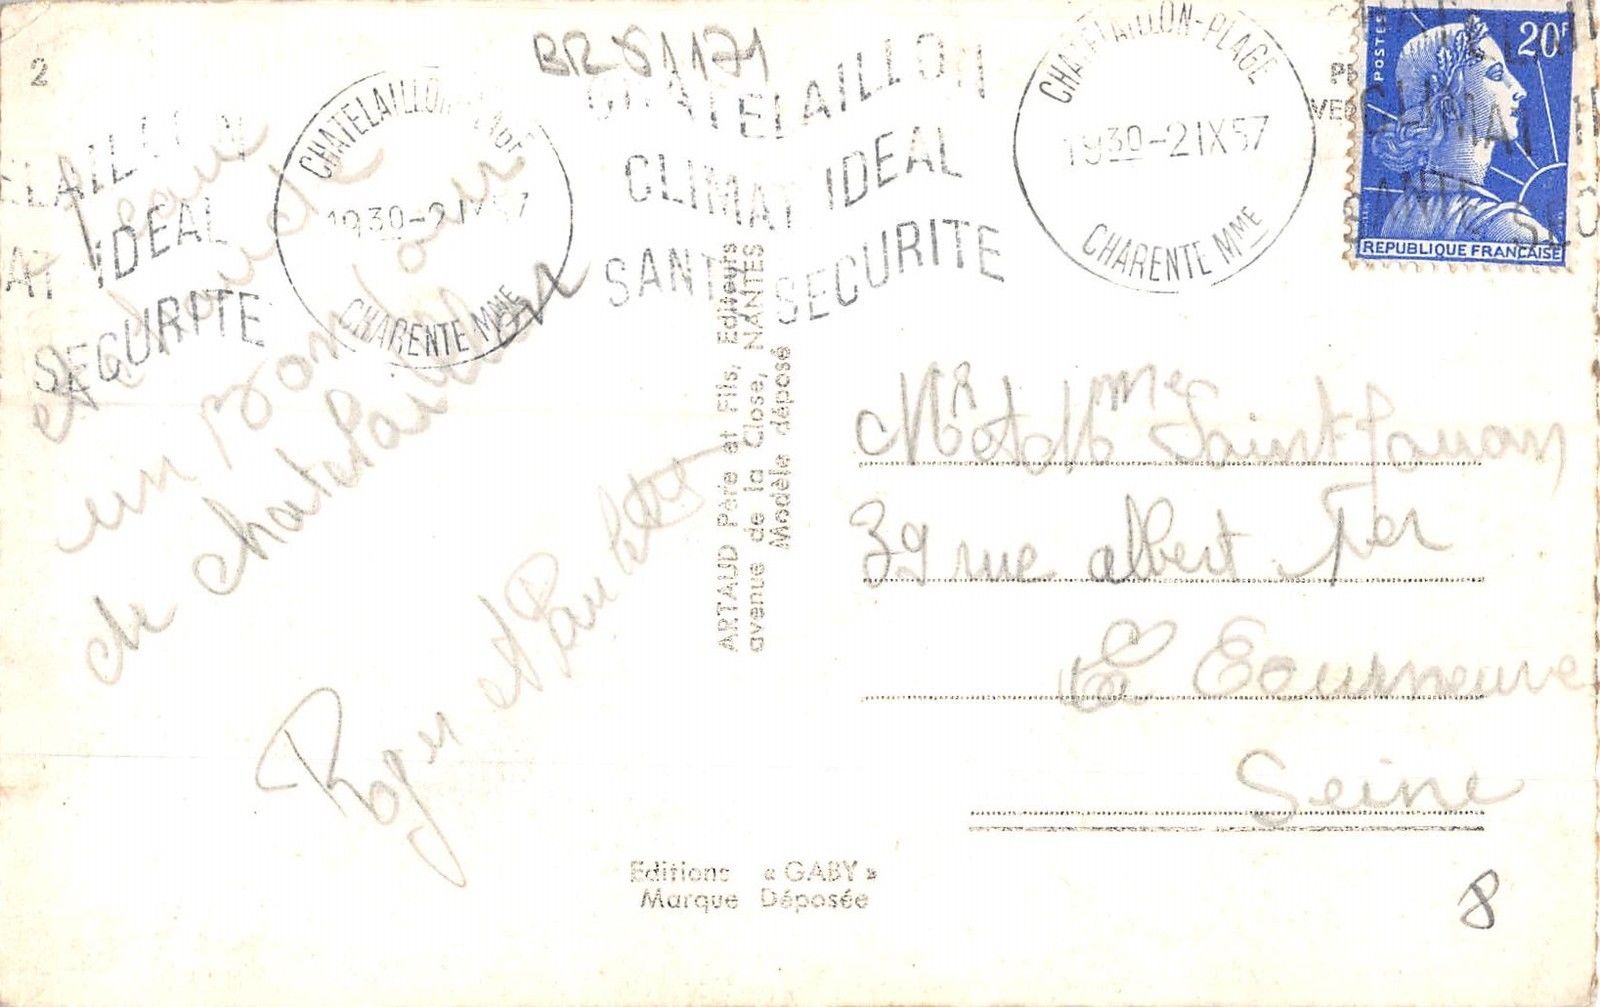 2
BR 81171
CHATELAILLON-PLAGE
1930-2 IX 57
CHARENTE MME
ELAILLON
AT IDEAL
SECURITE
CHATELAILLON
CLIMAT IDEAL
SANTE SECURITE
CHATELAILLON-PLAGE
1930-2 IX 57
CHARENTE MME
POSTES
20F
REPUBLIQUE FRANÇAISE
un bonjour
de chatelaillon
Roger et Paulette
ARTAUD Père et Fils, Editeurs
avenue de la Close, NANTES
Modèle déposé
Mr et Mme Saint Jouan
39 rue albert 1er
La Courneuve
Seine
Editions « GABY »
Marque Déposée
8